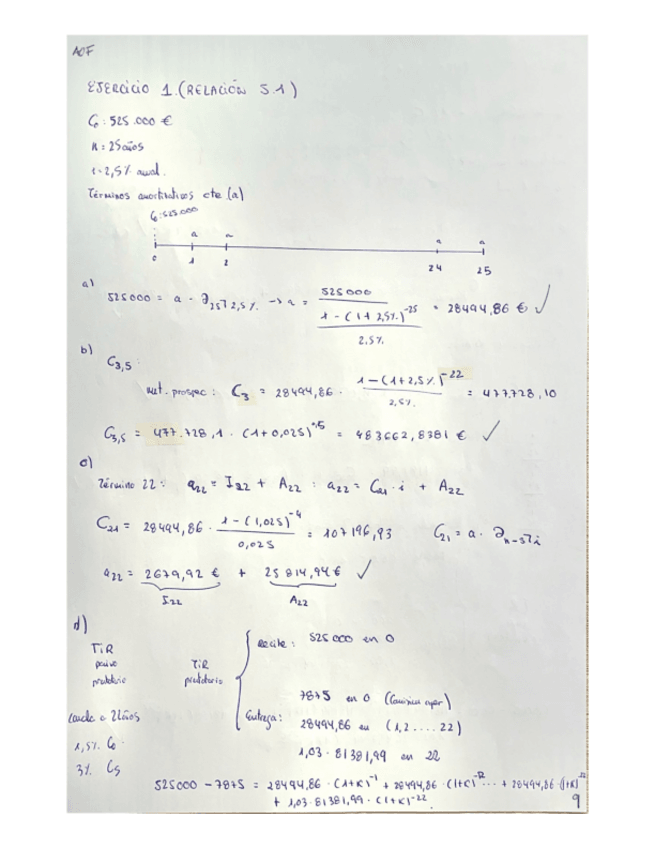 AOF
EJERCICIO 1.(RELACIÓN 5.1)
C₀: 525.000 €
n = 25 años
i = 2,5% anual.
Términos amortizativos cte (a)
C₀: 525.000
a a a a
0 1 2 24 25
a)
525000 = a · a25┐2,5% → a = 525000 / ((1 - (1+2,5%)^-25) / 2,5%) = 28494,86 € ✓
b)
C3,5 :
Met. prospec : C3 = 28494,86 · (1-(1+2,5%)^-22) / 2,5% = 477.728,10
C3,5 = 477.728,1 · (1+0,025)^0,5 = 483662,8381 € ✓
c)
Término 22 : a22 = I22 + A22 : a22 = C21 · i + A22
C21 = 28494,86 · (1-(1,025)^-4) / 0,025 = 107196,93 C21 = a · an-s┐i
a22 = 2679,92 € + 25814,94 € ✓
I22 A22
d)
TIR
pasivo
prestatario
TIR
prestatario
Recibe : 525000 en 0
7875 en 0 (Comisión aper)
Entrega : 28494,86 en (1,2 .... 22)
1,03 · 81381,99 en 22
1,5% C₀
3% Cs
525000 - 7875 = 28494,86 · (1+k)^-1 + 28494,86 · (1+k)^-2 ... + 28494,86 · (1+k)^-22
+ 1,03·81381,99 · (1+k)^-22
9